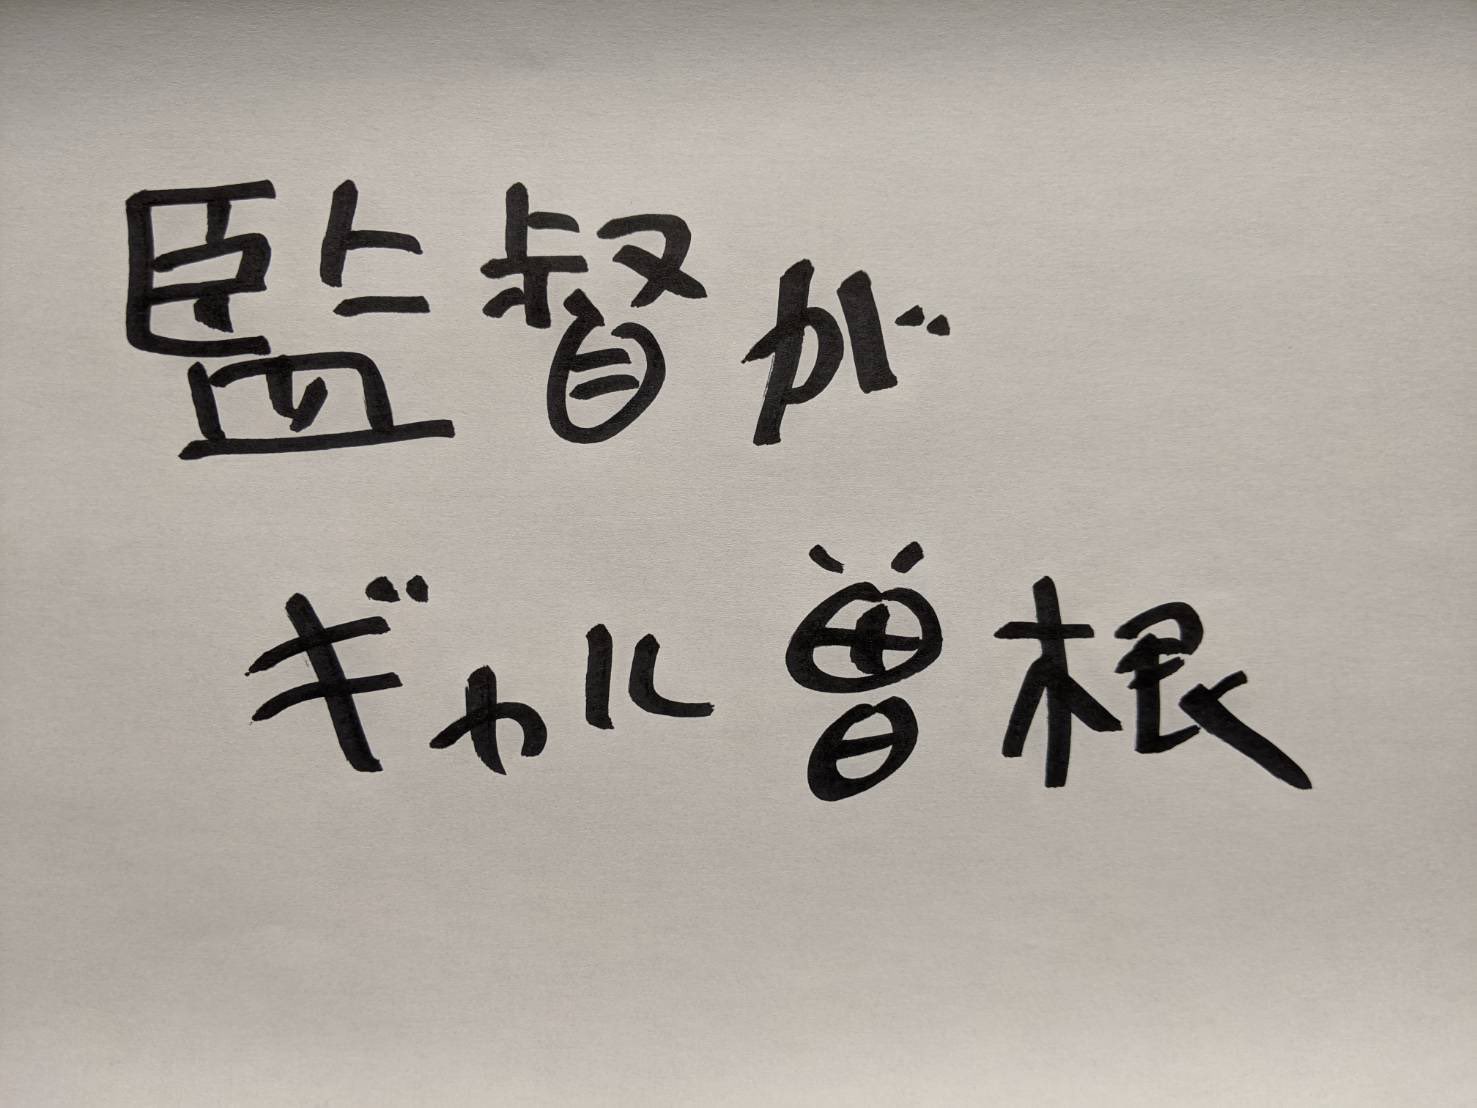 監督が
ギャル曽根